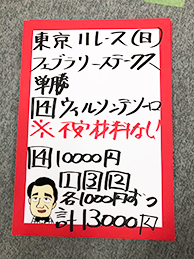 東京11レース(日)
フェブラリーステークス
単勝
14 ウィルソンテソーロ
※不安材料なし
14 10000円
1 3 12
各1000円ずつ
計13000円